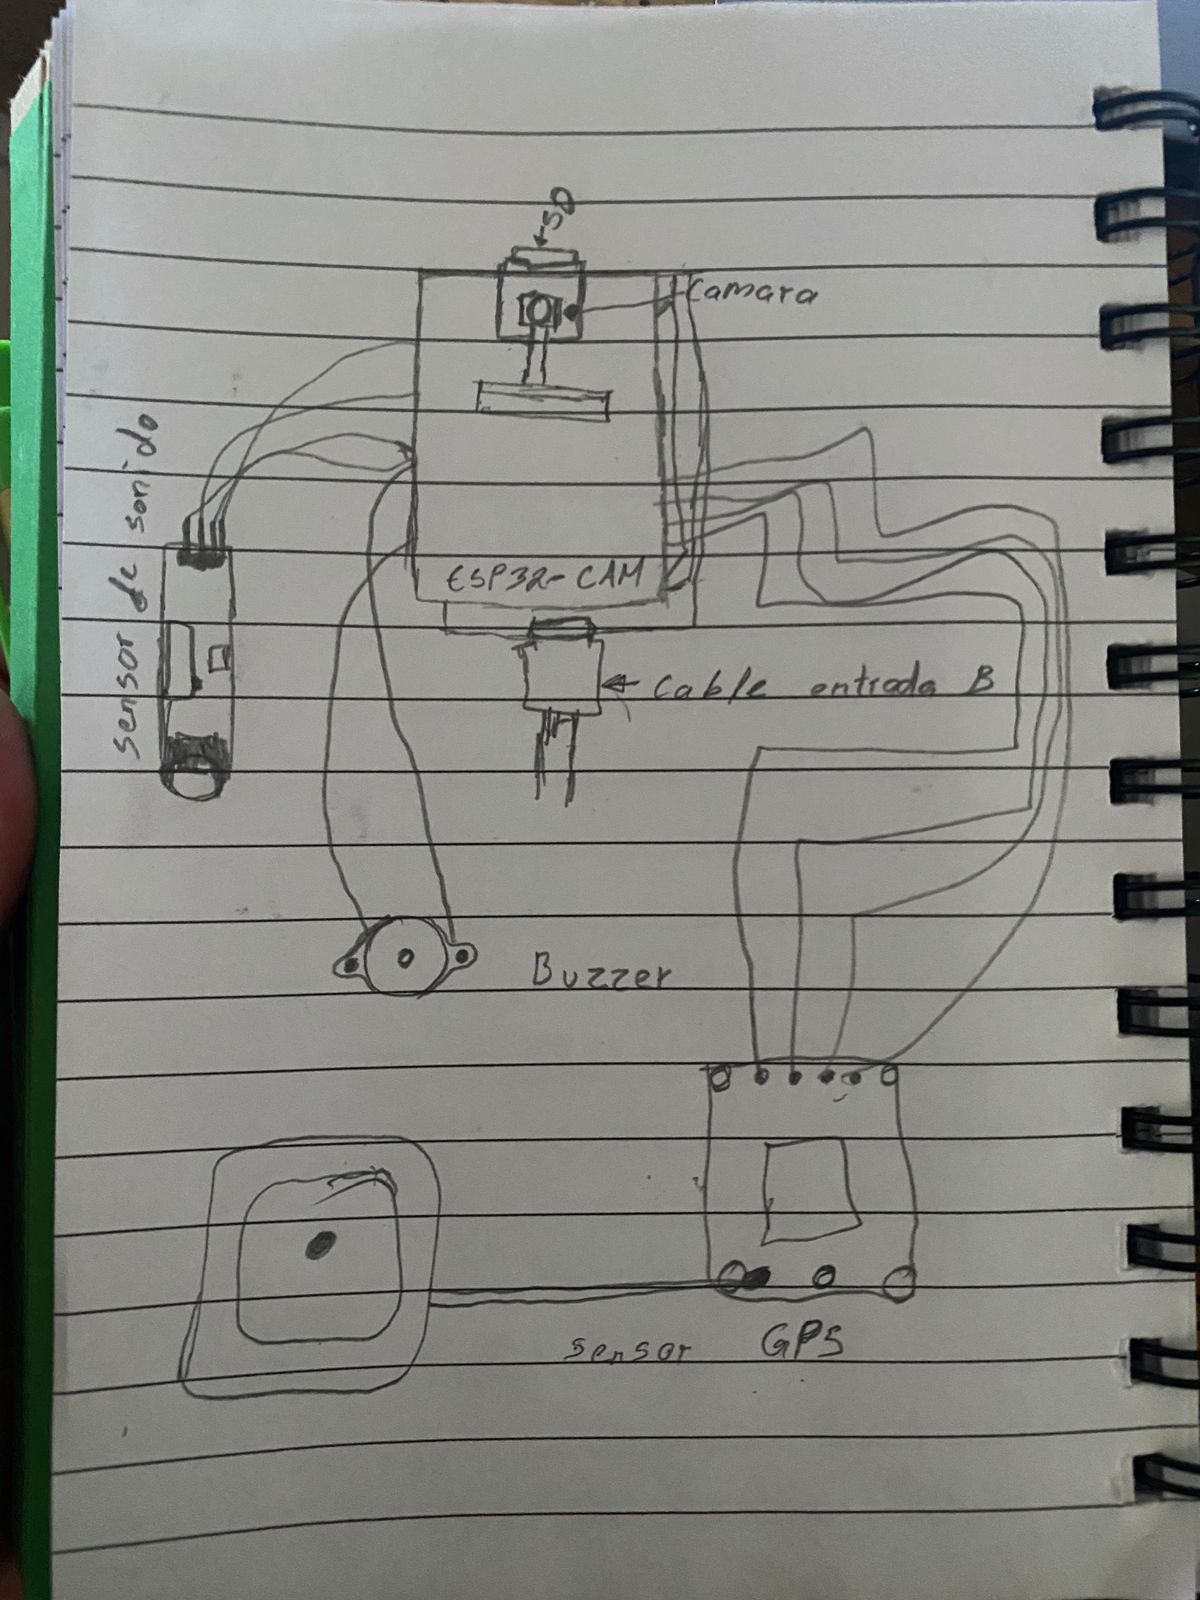 SD
Camara
sensor de sonido
ESP32-CAM
Cable entrada B
Buzzer
sensor GPS